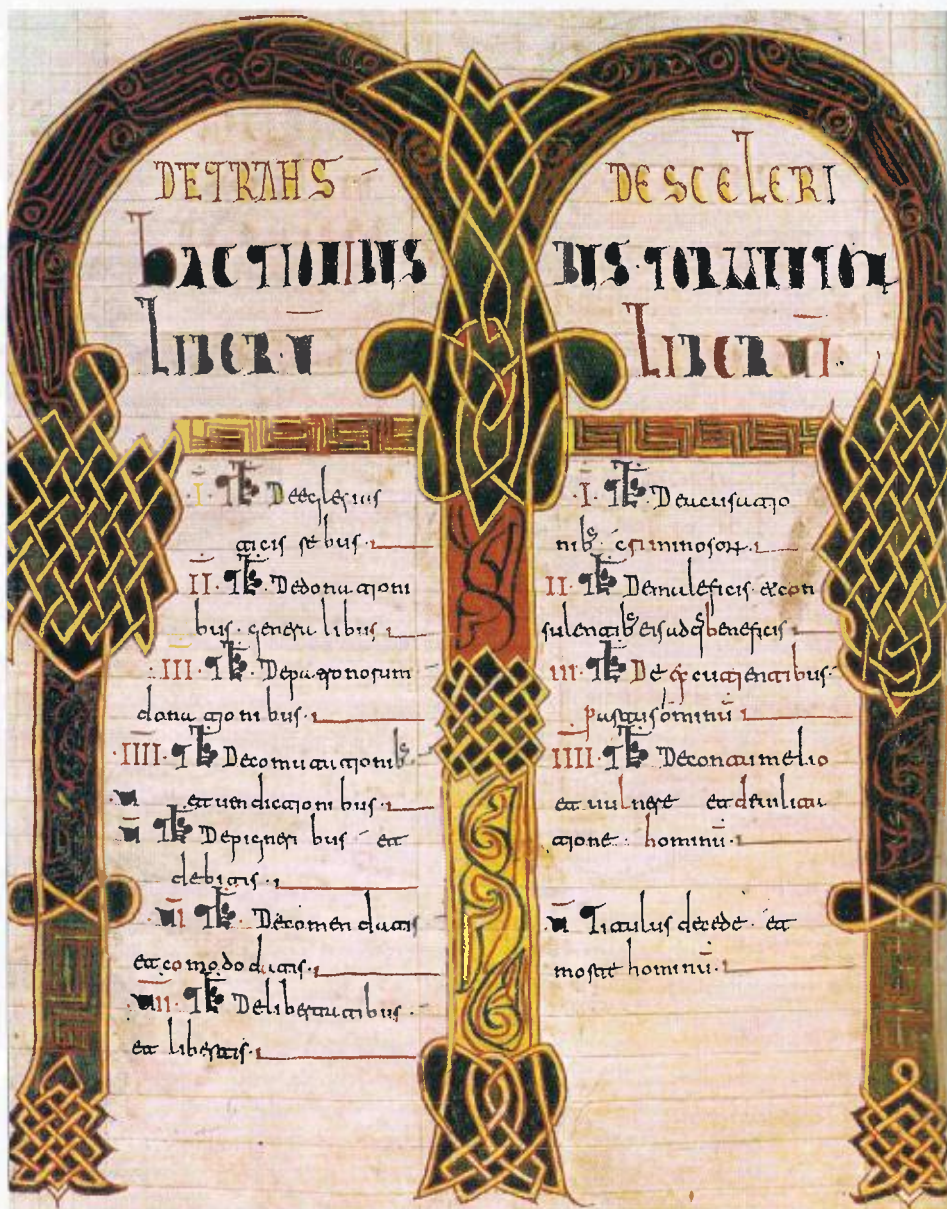 DE TRAHS
hACTIONIBUS
LIBER V̄
I. TL De eclesias
ticis rebus.
II. TL De donationi
bus generalibus.
III. TL De patronorum
donationibus.
IIII. TL De comutationibs
et vendictionibus.
V TL De pigneribus et
debitis.
VI TL De comendatis
et comodatis.
VII. TL De libertatibus.
et libertis.
DE SCELERI
BUS. TORMENTOR
LIBER VI.
I. TL De accusatio
nibs criminosor.
II. TL De maleficis et con
sulentibs eis adqs beneficis
III TL De excutientibus
partus ominū
IIII TL De contumelio
et vulnere et devilita
tione hominū.
V Titulus de cede et
morte hominū.